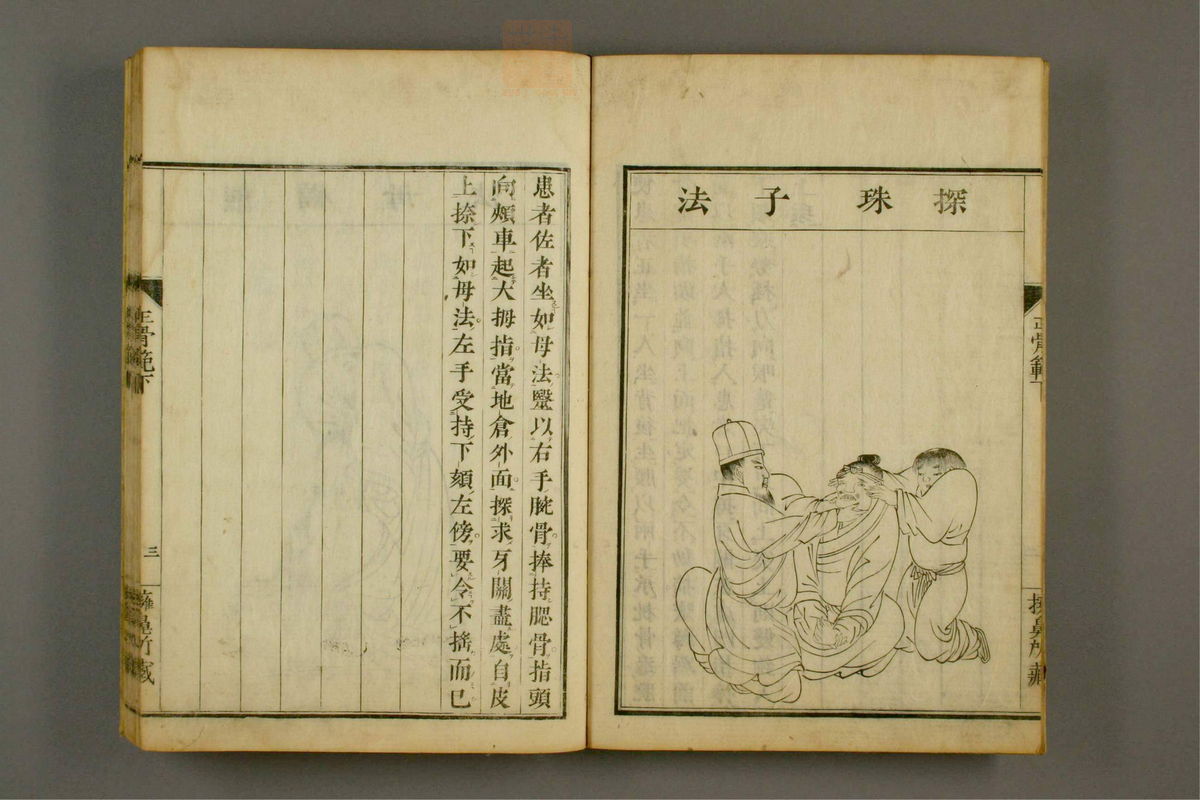 探珠子法
正骨範下
患者佐者坐如母法蹩以右手腕骨捧持腮骨指頭
向頰車起大拇指當地倉外面探求牙關盡處自皮
上捺下如母法左手受持下頦左傍要令不搖而已
正骨範下
三